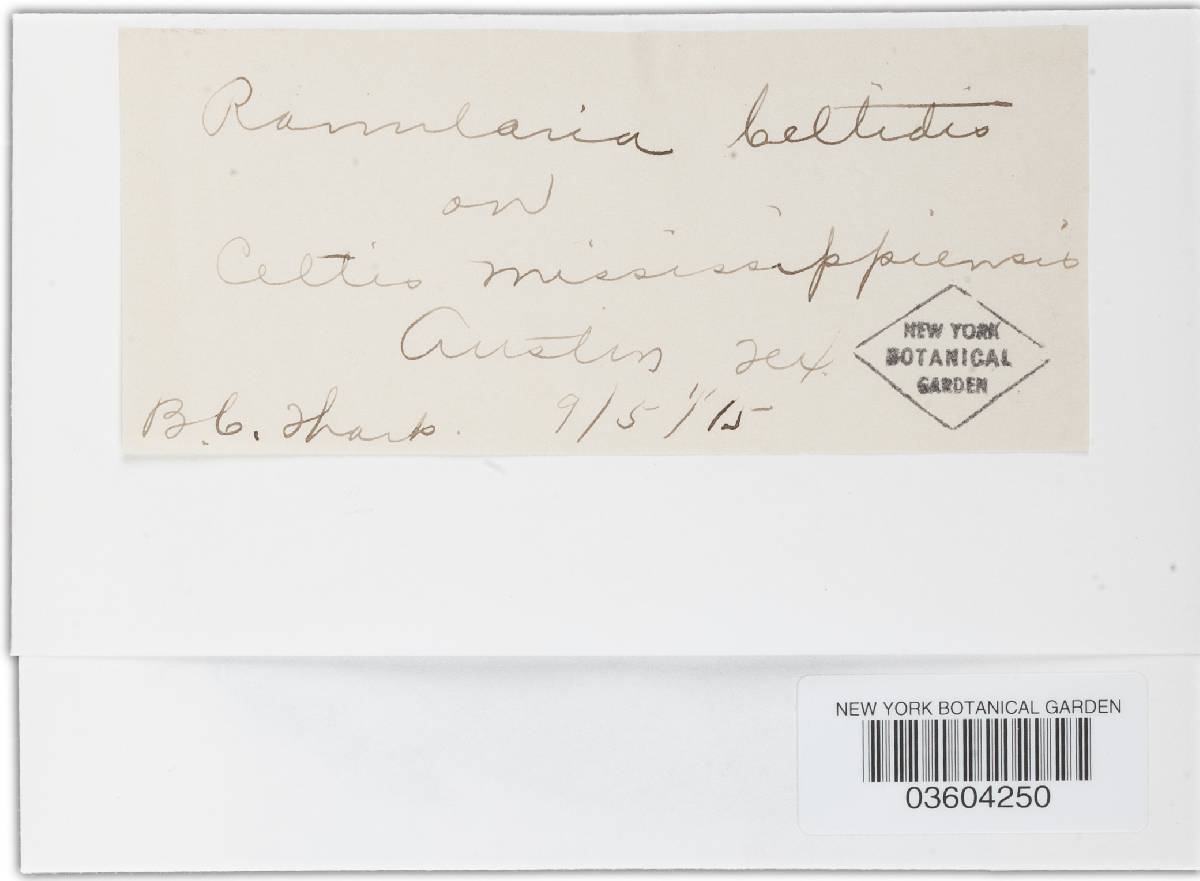 Ramularia Celtidis
on
Celtis mississippiensis
Austin Tex.
B.C. Tharp. 9/5/15
NEW YORK
BOTANICAL
GARDEN
NEW YORK BOTANICAL GARDEN
03604250